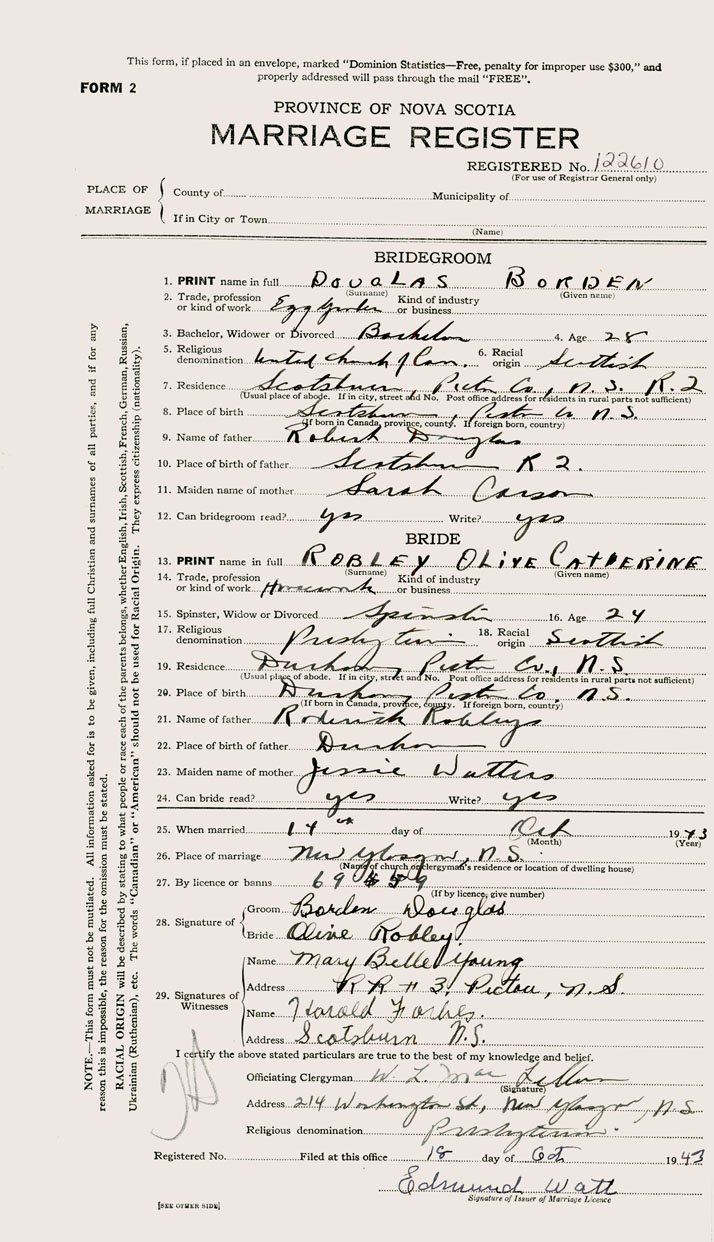 This form, if placed in an envelope, marked "Dominion Statistics—Free, penalty for improper use $300," and
properly addressed will pass through the mail "FREE".
FORM 2
PROVINCE OF NOVA SCOTIA
MARRIAGE REGISTER
REGISTERED No. 122610
(For use of Registrar General only)
PLACE OF MARRIAGE
County of Municipality of
If in City or Town
(Name)
BRIDEGROOM
1. PRINT name in full DOUGLAS BORDEN
(Surname) (Given name)
2. Trade, profession or kind of work Egg Grader Kind of industry or business
3. Bachelor, Widower or Divorced Bachelor 4. Age 28
5. Religious denomination United Church of Can. 6. Racial origin Scottish
7. Residence Scotsburn, Pictou Co., N.S. R.2
(Usual place of abode. If in city, street and No. Post office address for residents in rural parts not sufficient)
8. Place of birth Scotsburn, Pictou Co. N.S.
(If born in Canada, province, county. If foreign born, country)
9. Name of father Robert Douglas
10. Place of birth of father Scotsburn R 2.
11. Maiden name of mother Sarah Carson
12. Can bridegroom read? yes Write? yes
BRIDE
13. PRINT name in full ROBLEY OLIVE CATHERINE
(Surname) (Given name)
14. Trade, profession or kind of work Housework Kind of industry or business
15. Spinster, Widow or Divorced Spinster 16. Age 24
17. Religious denomination Presbyterian 18. Racial origin Scottish
19. Residence Durham, Pictou Co., N.S.
(Usual place of abode. If in city, street and No. Post office address for residents in rural parts not sufficient)
20. Place of birth Durham, Pictou Co. N.S.
(If born in Canada, province, county. If foreign born, country)
21. Name of father Roderick Robleys
22. Place of birth of father Durham
23. Maiden name of mother Jessie Watters
24. Can bride read? yes Write? yes
25. When married 14th day of Oct 1943
(Month) (Year)
26. Place of marriage New Glasgow, N.S.
(Name of church or clergyman's residence or location of dwelling house)
27. By licence or banns
(If by licence, give number)
28. Signature of
Groom Borden Douglas
Bride Olive Robley
29. Signatures of Witnesses
Name Mary Belle Young
Address RR # 3, Pictou, N.S.
Name Harold Forbes.
Address Scotsburn N.S.
I certify the above stated particulars are true to the best of my knowledge and belief.
Officiating Clergyman W. L. Mac Lellan
(Signature)
Address 214 Washington St., New Glasgow, N.S
Religious denomination Presbyterian.
Registered No. Filed at this office 18 day of Oct 1943
Edmund Watt
Signature of Issuer of Marriage Licence
[SEE OTHER SIDE]
NOTE.—This form must not be mutilated. All information asked for is to be given, including full Christian and surnames of all parties, and if for any
reason this is impossible, the reason for the omission must be stated.
RACIAL ORIGIN will be described by stating to what people or race each of the parents belongs, whether English, Irish, Scottish, French, German, Russian,
Ukrainian (Ruthenian), etc. The words "Canadian" or "American" should not be used for Racial Origin. They express citizenship (nationality).